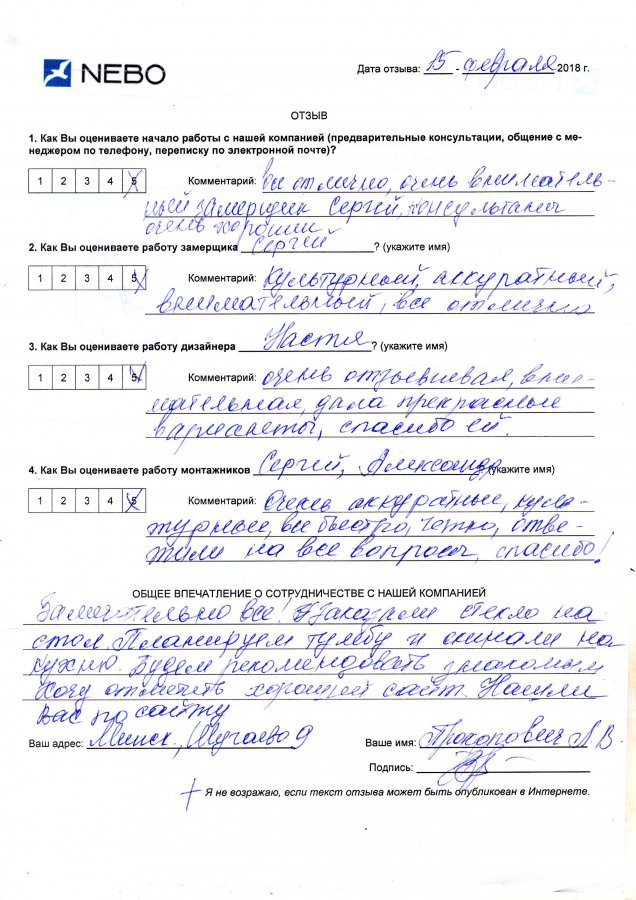 NEBO
Дата отзыва: 15 - февраля 2018 г.
ОТЗЫВ
1. Как Вы оцениваете начало работы с нашей компанией (предварительные консультации, общение с ме-
неджером по телефону, переписку по электронной почте)?
1 2 3 4 5 Комментарий: все отлично, очень вниматель-
ный замерщик Сергей, консультант
очень хороший
2. Как Вы оцениваете работу замерщика Сергей ? (укажите имя)
1 2 3 4 5 Комментарий: культурный, аккуратный,
внимательный, все отлично
3. Как Вы оцениваете работу дизайнера Настя ? (укажите имя)
1 2 3 4 5 Комментарий: очень отзывчивая, вни-
мательная, дала прекрасные
варианты, спасибо ей.
4. Как Вы оцениваете работу монтажников Сергей, Александр (укажите имя)
1 2 3 4 5 Комментарий: Очень аккуратные, куль-
турные, все быстро, четко, отве-
тили на все вопросы, спасибо!
ОБЩЕЕ ВПЕЧАТЛЕНИЕ О СОТРУДНИЧЕСТВЕ С НАШЕЙ КОМПАНИЕЙ
Замечательно все! Заказали стекло на
стол. Планируем тумбу и скинали на
кухню. Будем рекомендовать знакомым
Хочу отметить хороший сайт. Нашли
вас по сайту
Ваш адрес: Минск, Шугаево 9 Ваше имя: Прокопович Л.В
Подпись:
Я не возражаю, если текст отзыва может быть опубликован в Интернете.